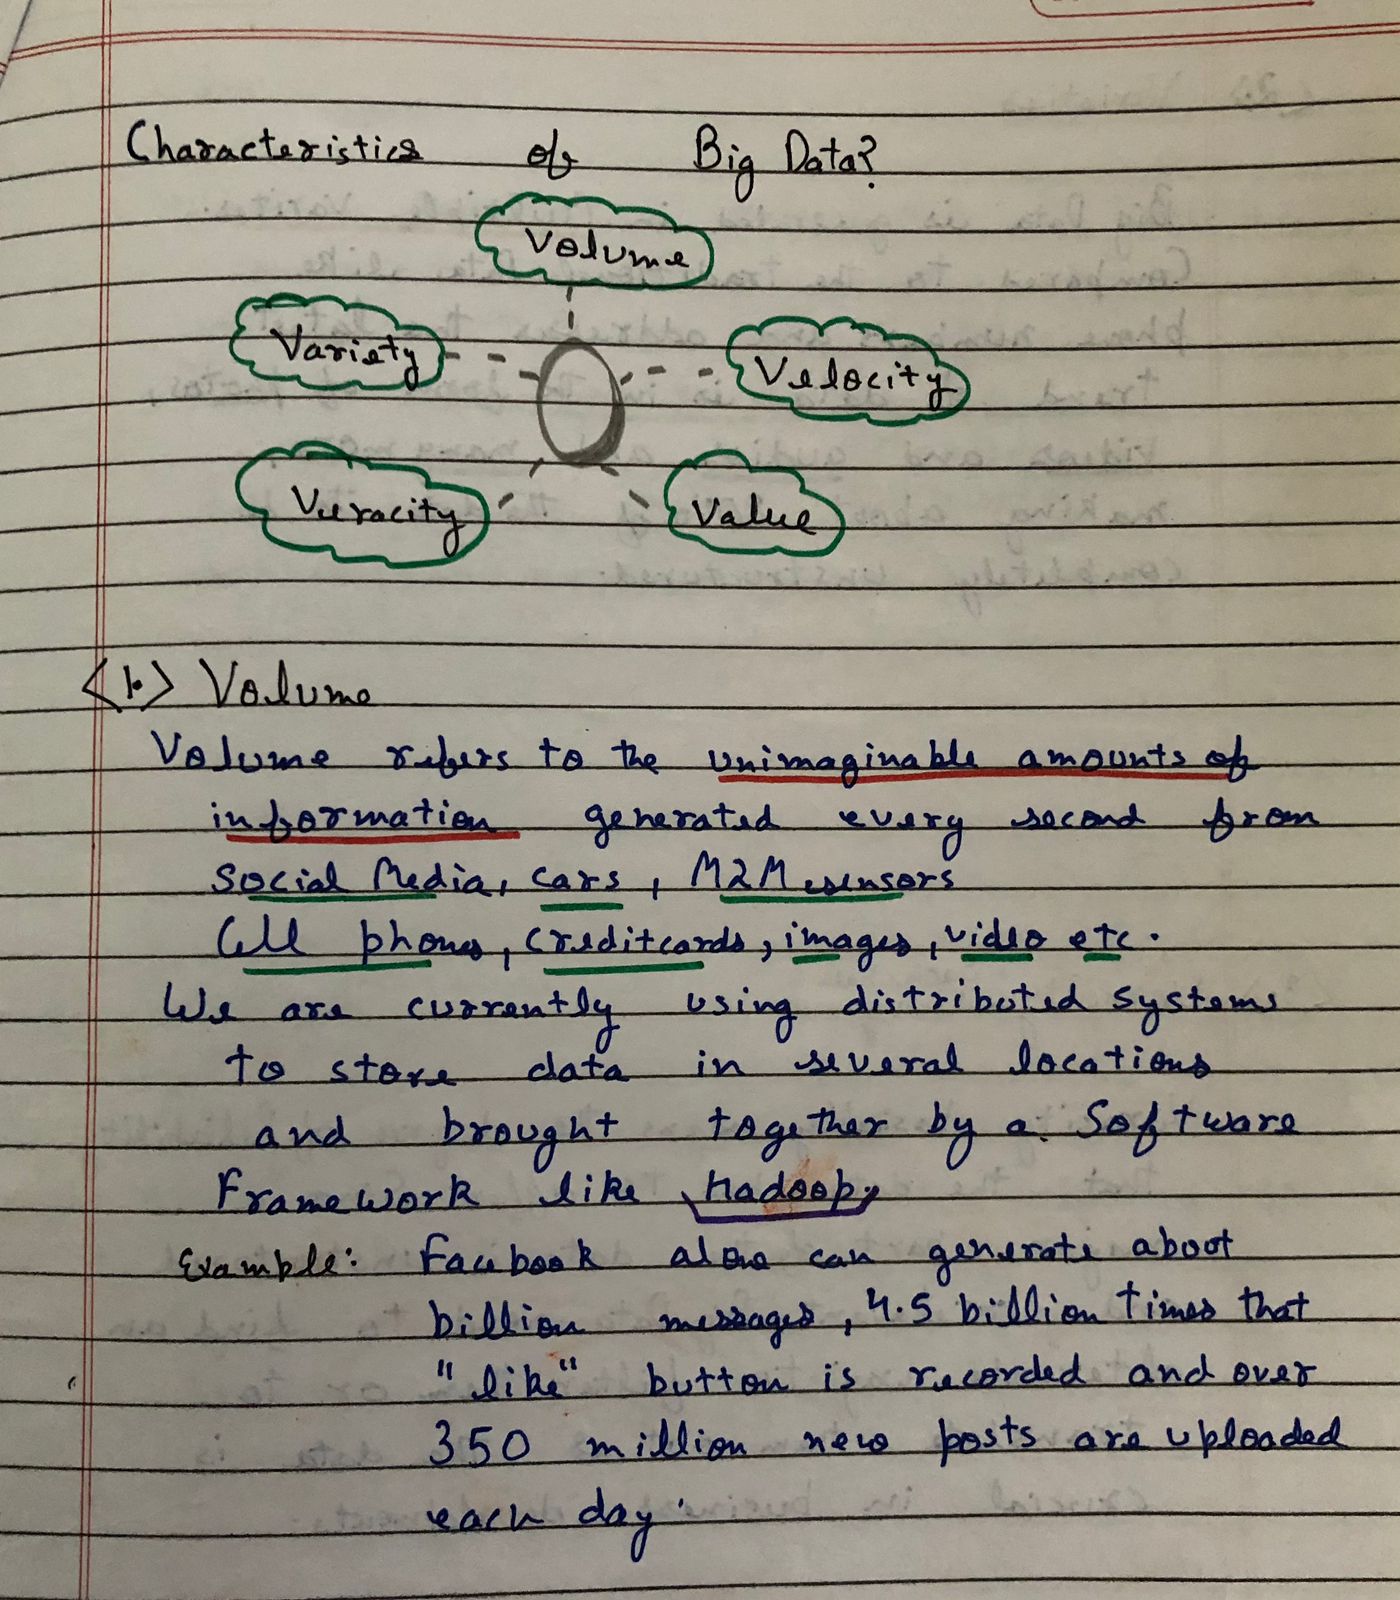 Characteristics of Big Data?
Volume
Variety
Velocity
Veracity
Value
<1.> Volume
Volume refers to the unimaginable amounts of
information generated every second from
Social Media, cars, M2M sensors
Cell phones, creditcards, images, video etc.
We are currently using distributed systems
to store data in several locations
and brought together by a Software
Framework like hadoop,
Example: Facebook alone can generate about
billion messages, 4.5 billion times that
"like" button is recorded and over
350 million new posts are uploaded
each day.